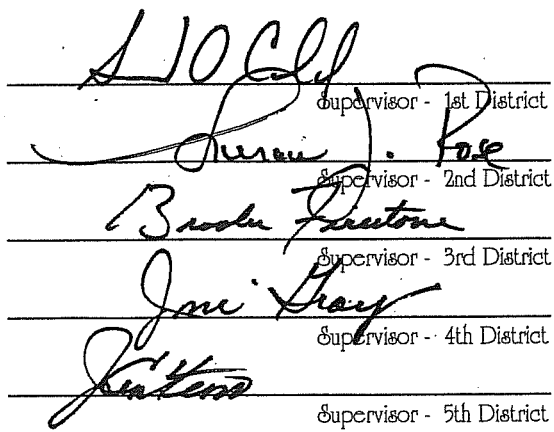 Supervisor - 1st District
Susan J. Rose
Supervisor - 2nd District
Brooks Firestone
Supervisor - 3rd District
Joni Gray
Supervisor - 4th District
Supervisor - 5th District